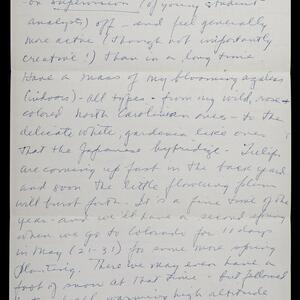 or supervision (of young student
analysts) off - and feel generally
more active (though not importantly
creative!) than in a long time.
Have a mass of my blooming azaleas
(indoors) - all types - from my wild, rose
colored North Carolinian ones - to the
delicate white, gardenia like ones
that the Japanese hybridize - Tulips
are coming up fast in the back yard
and soon the little flowering plum
will burst forth - It's a fine time of the
year - and we'll have a second spring
when we go to Colorado for 11 days
in May (21-31) for some more spring
planting. There we may even have a
foot of snow at that time - but followed
warming high altitude